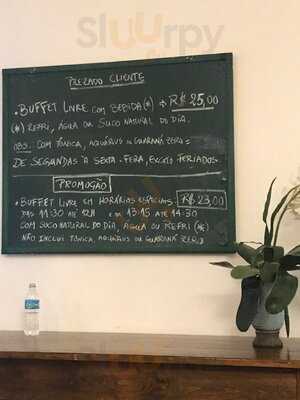 Sluurpy
PREZADO CLIENTE
• BUFFET LIVRE COM BEBIDA (*) → R$ 25,00
(*) REFRI, ÁGUA OU SUCO NATURAL DO DIA.
OBS. COM TÔNICA, AQUÁRIUS OU GUARANÁ ZERO =
DE SEGUNDAS À SEXTA-FEIRA, EXCETO FERIADOS.
PROMOÇÃO
• BUFFET LIVRE EM HORÁRIOS ESPECIAIS R$ 23,00
DAS 11:30 ATÉ 12H E DE 13:45 ATÉ 14:30
COM SUCO NATURAL DO DIA, ÁGUA OU REFRI (*)
NÃO INCLUI TÔNICA, AQUÁRIUS OU GUARANÁ ZERO